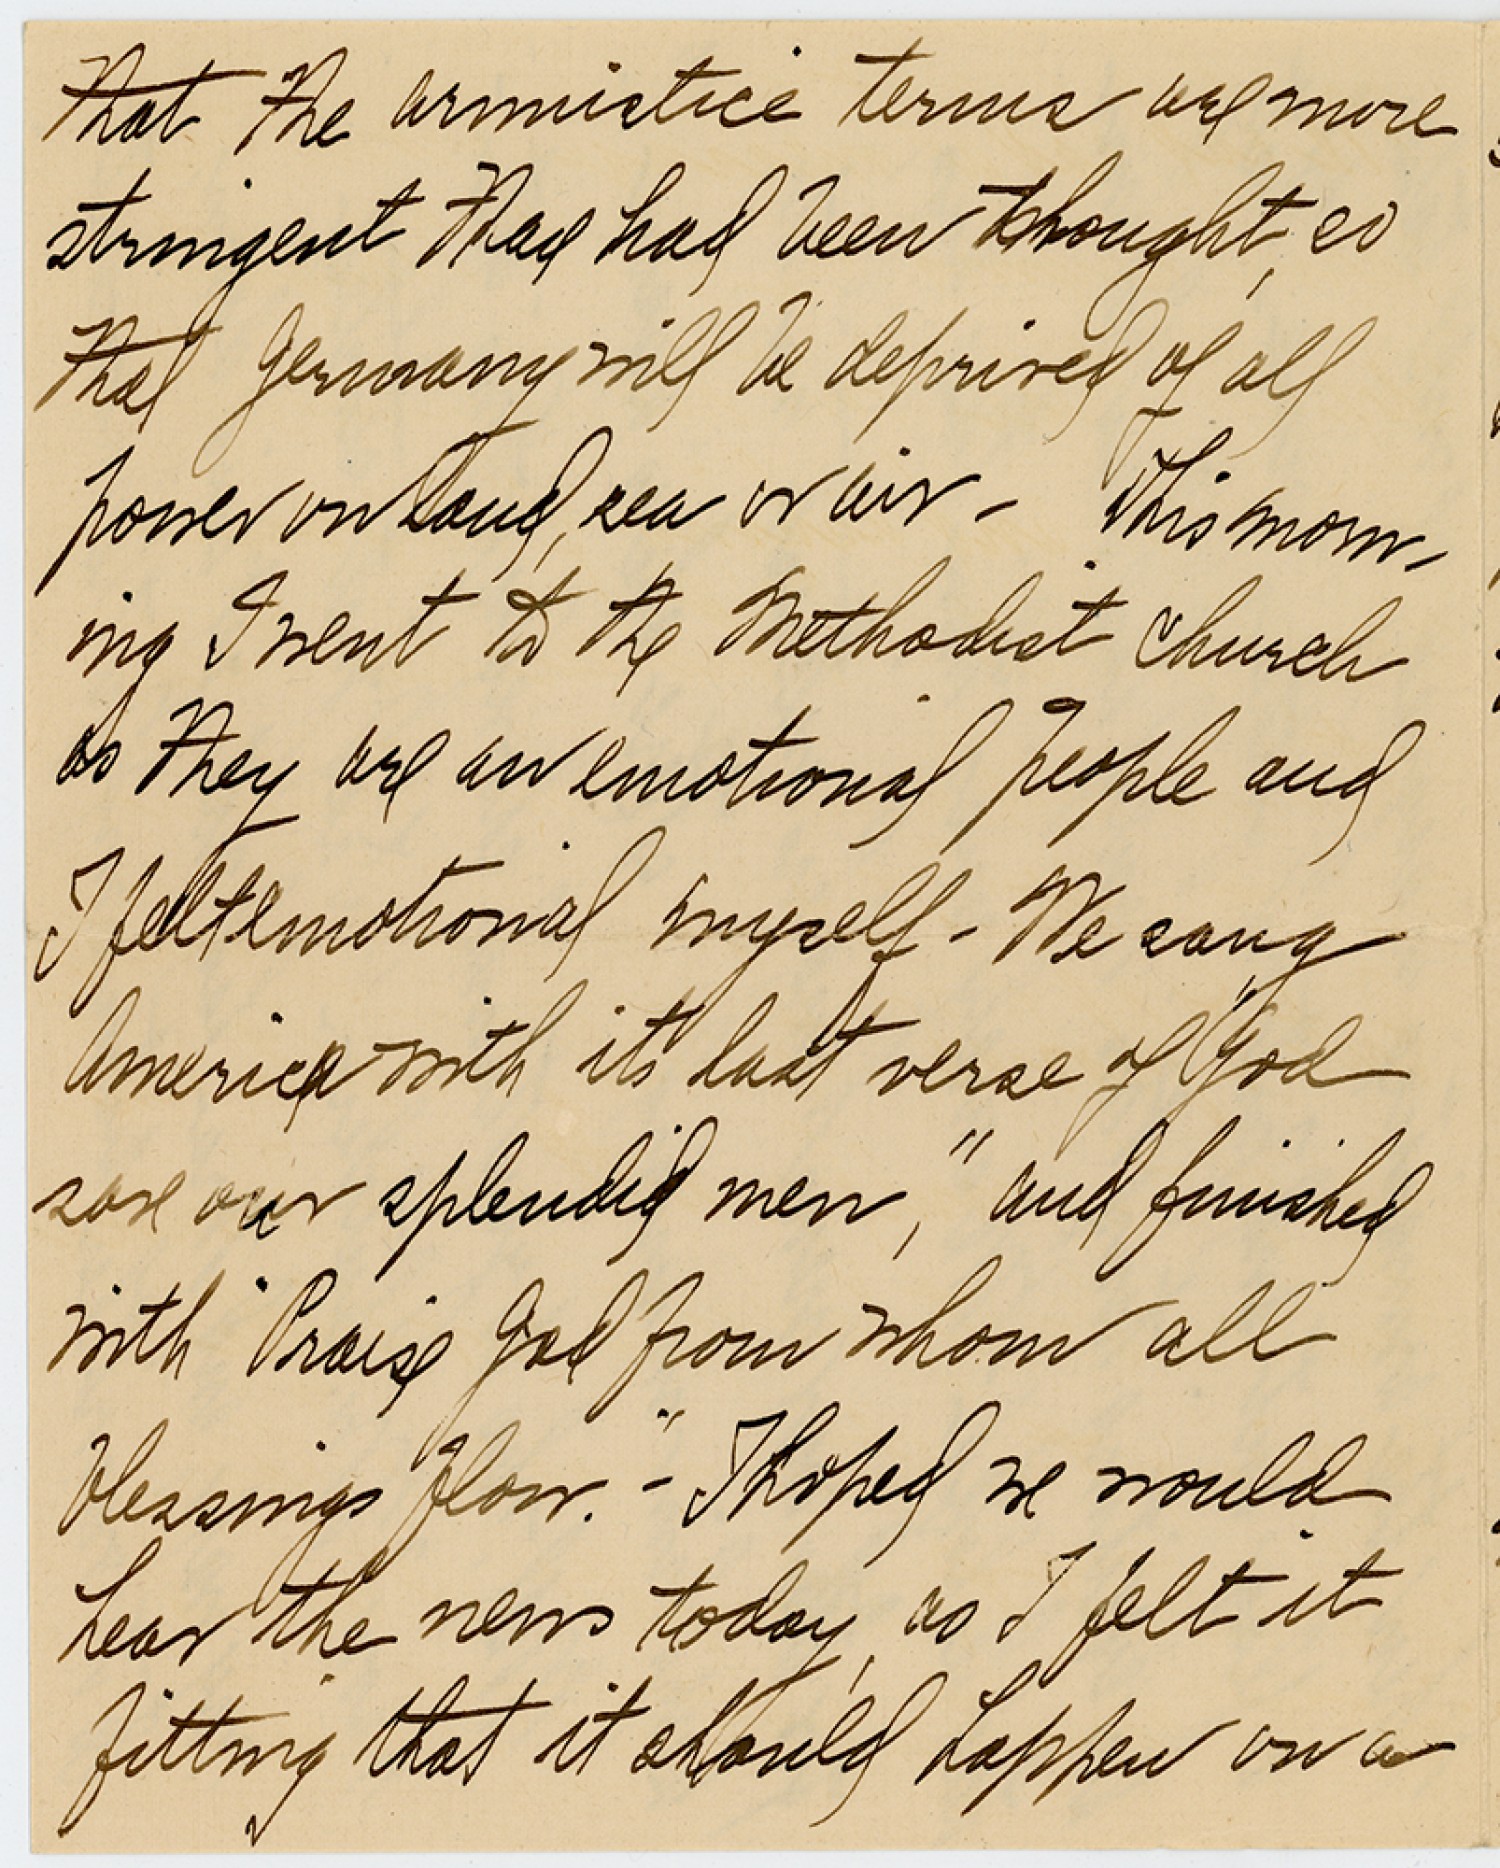 that the armistice terms are more
stringent than had been thought, so
that Germany will be deprived of all
power on land, sea or air - This morn-
ing I went to the Methodist church
as they are an emotional people and
I felt emotional myself - We sang
America with its last verse of "God
save our splendid men," and finished
with "Praise God from whom all
blessings flow." - I hoped we would
hear the news today, as I felt it
fitting that it should happen on a